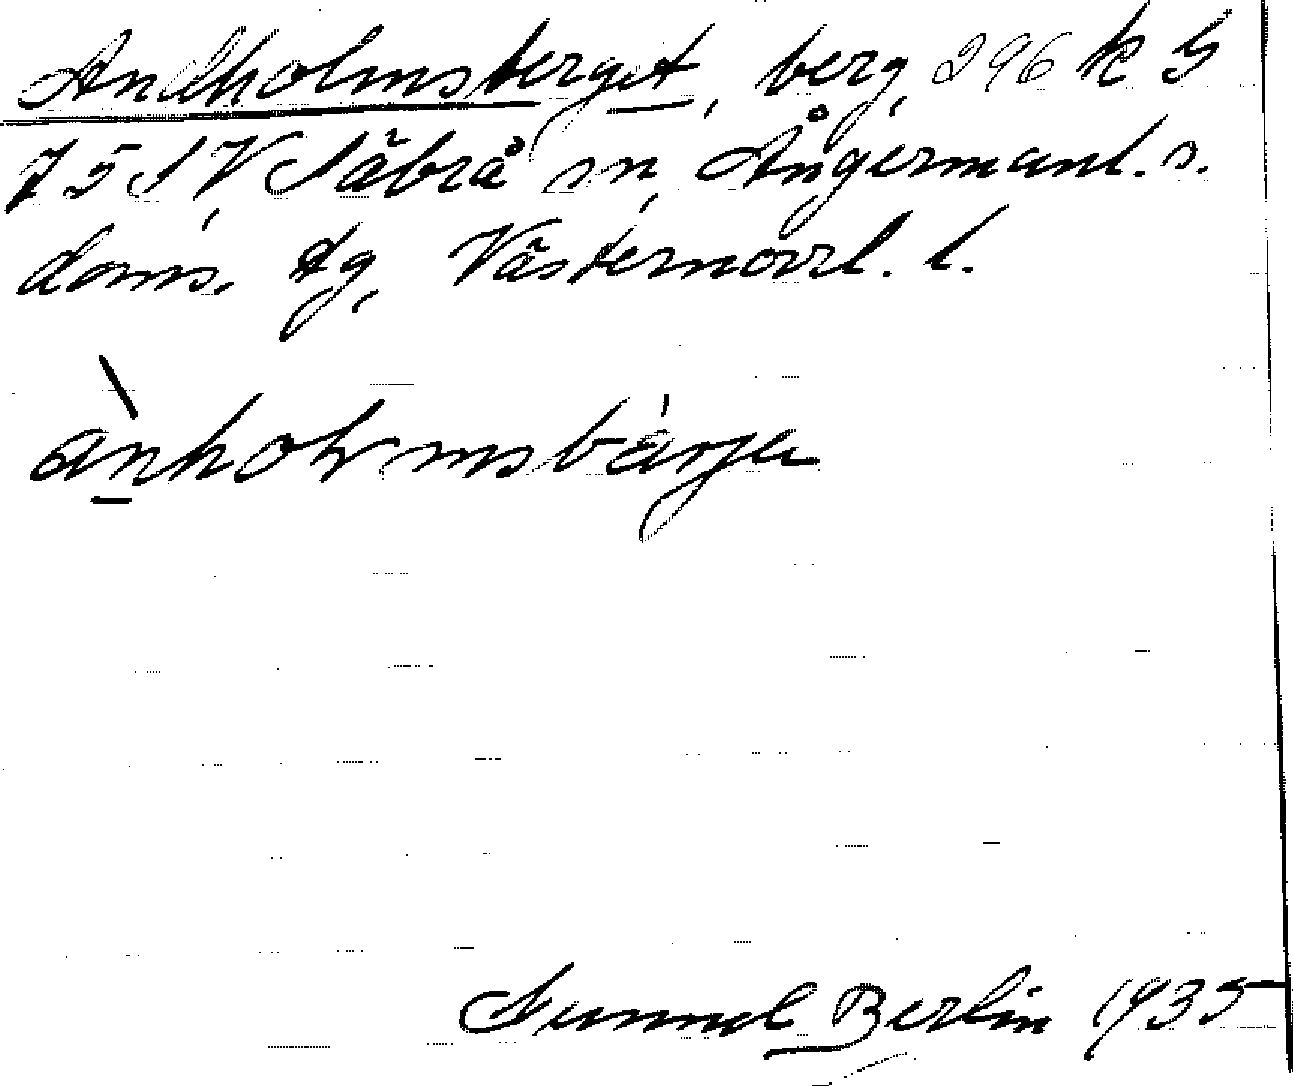 Andholmsberget, berg, 296 k 5
75 SV Säbrå sn, Ångermanl. s.
doms. tg, Västernorrl. l.
ànholmsbárjə
Gunnel Berlin 1935